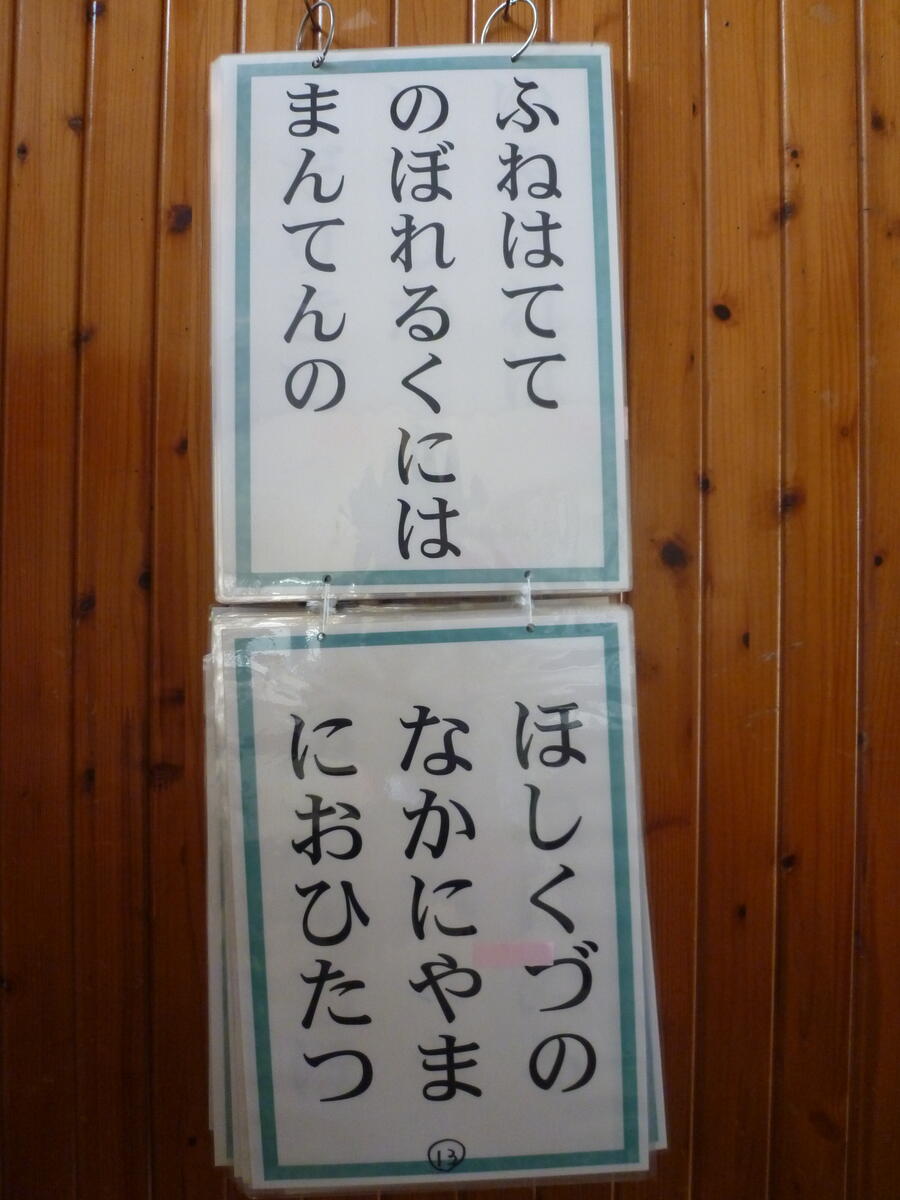 ふねはてて
のぼれるくには
まんてんの
ほしくづの
なかにやま
におひたつ
13